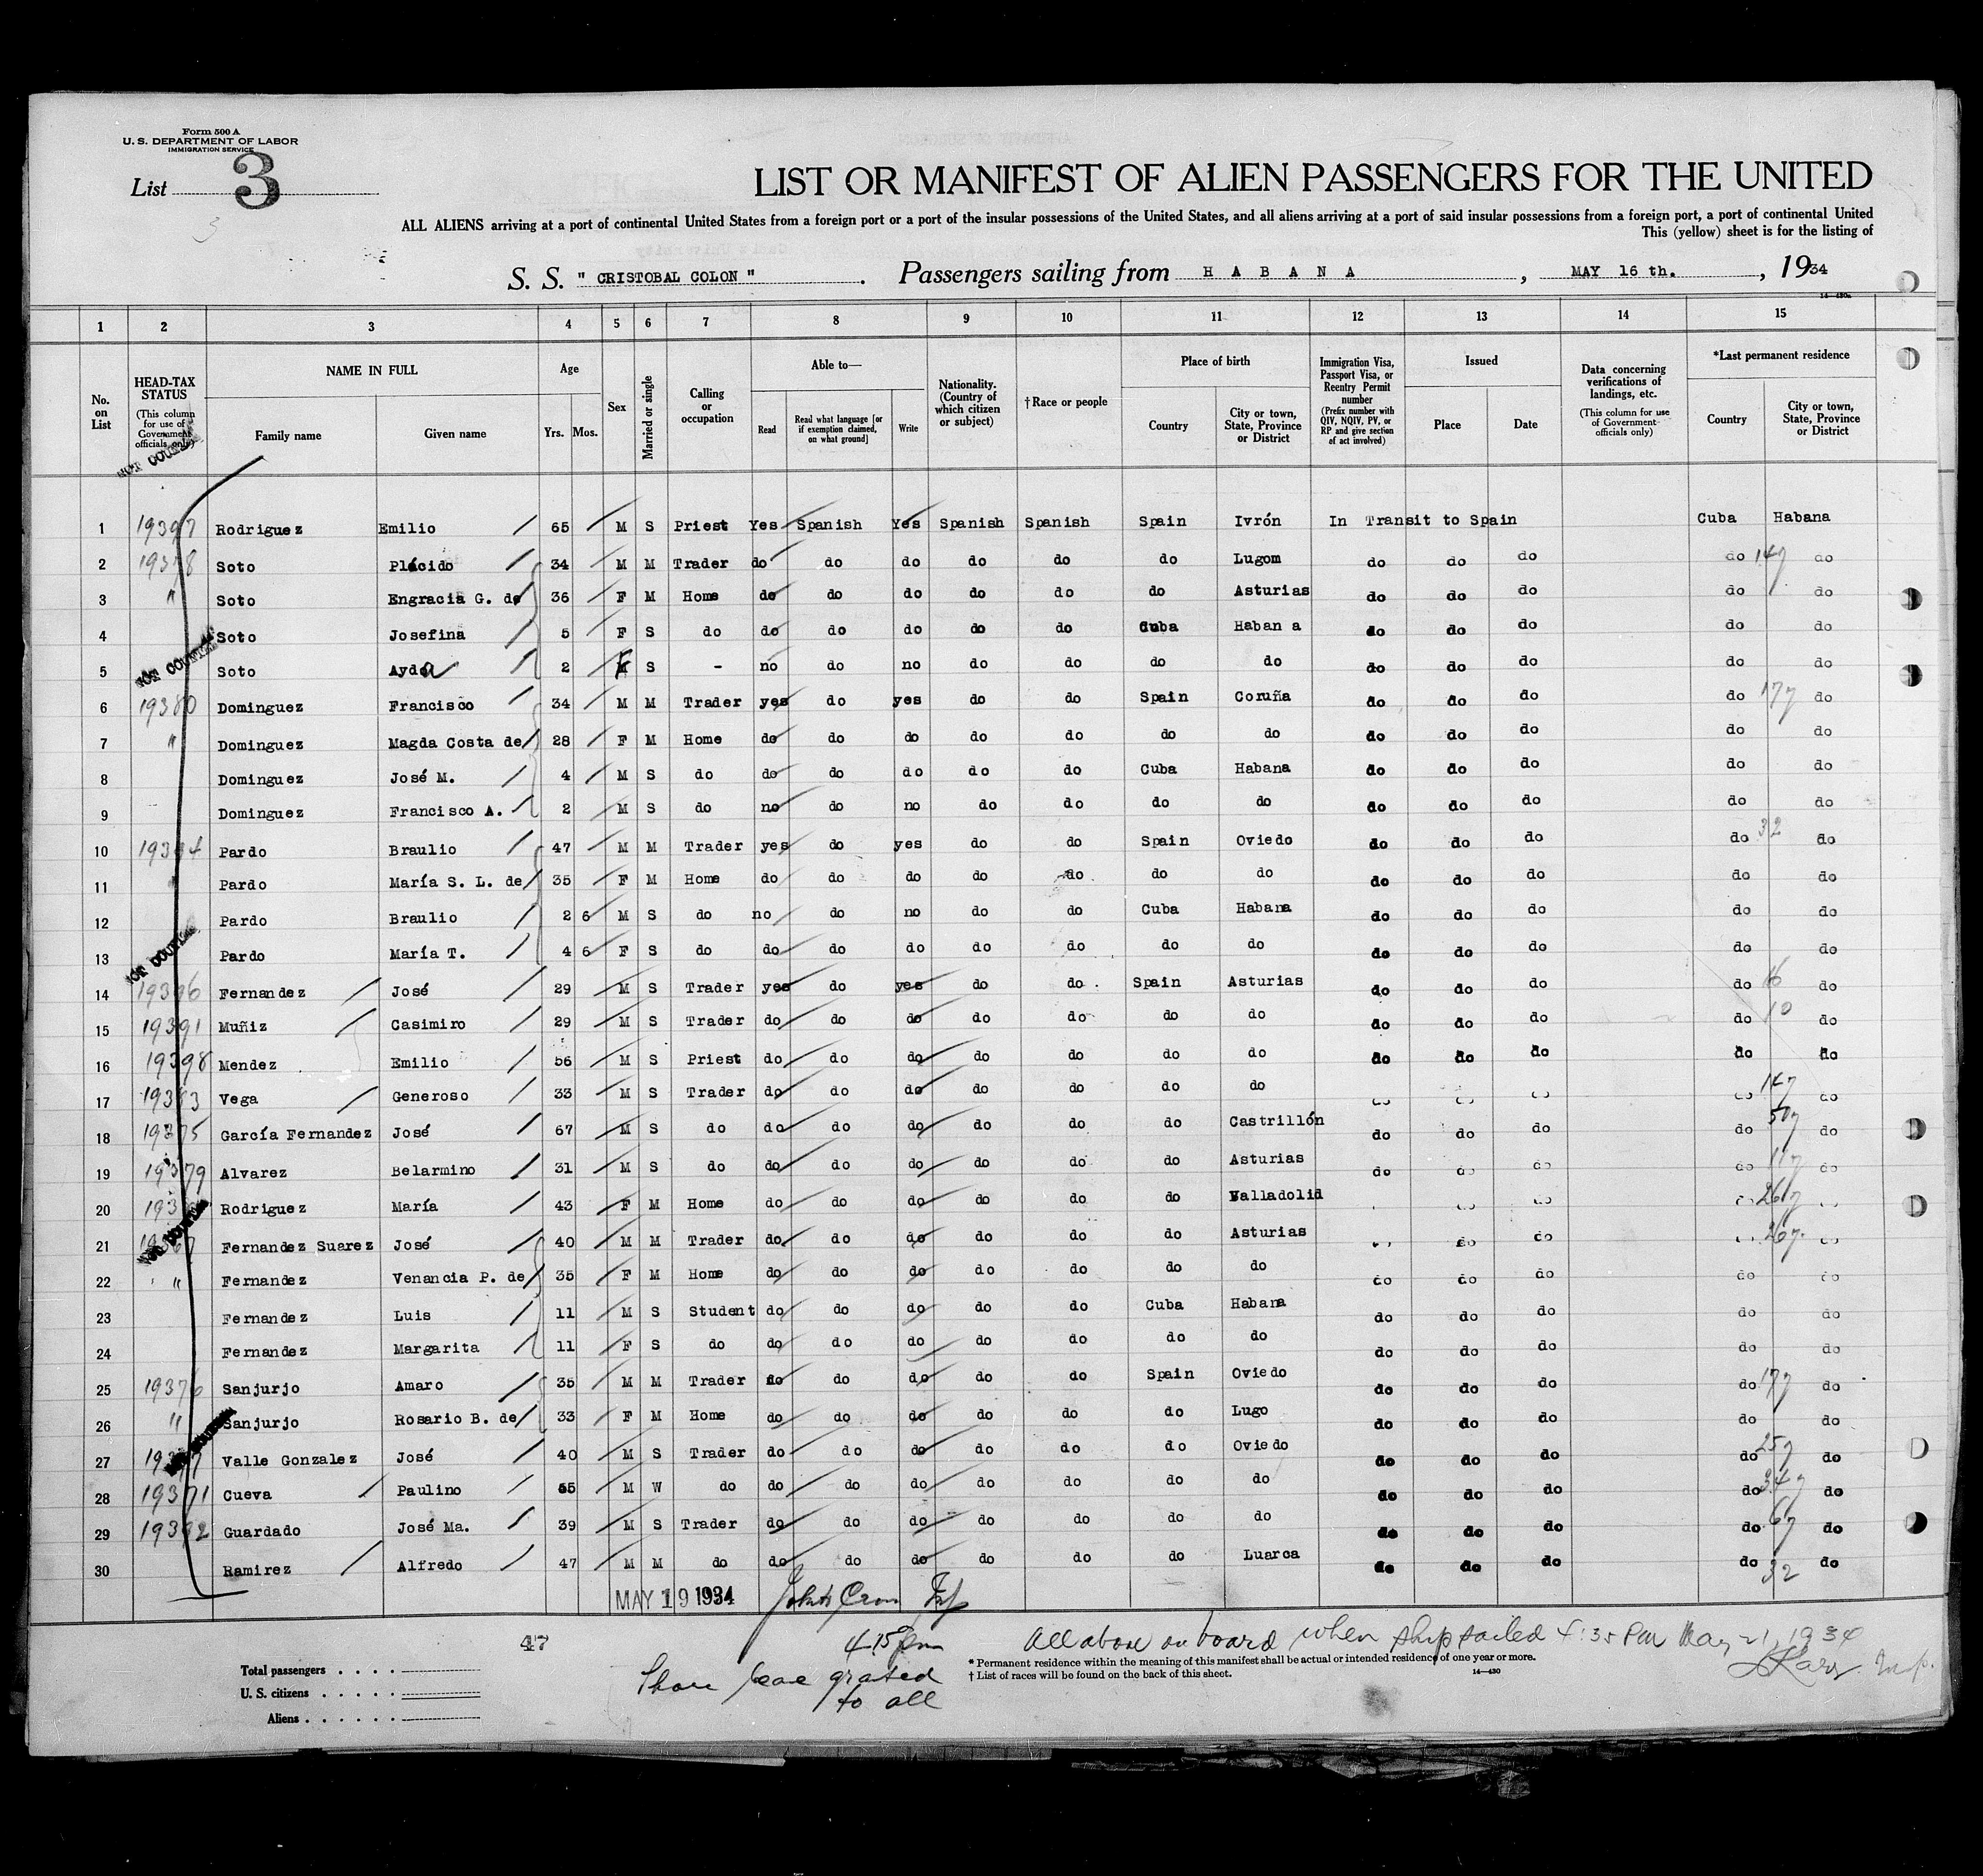 Form 500 A
U. S. DEPARTMENT OF LABOR
IMMIGRATION SERVICE
List 3
3
LIST OR MANIFEST OF ALIEN PASSENGERS FOR THE UNITED
ALL ALIENS arriving at a port of continental United States from a foreign port or a port of the insular possessions of the United States, and all aliens arriving at a port of said insular possessions from a foreign port, a port of continental United
This (yellow) sheet is for the listing of
S. S. " CRISTOBAL COLON " . Passengers sailing from H A B A N A , MAY 16 th. , 1934
14—430a
1 2 3 4 5 6 7 8 9 10 11 12 13 14 15
No. on List
HEAD-TAX STATUS (This column for use of Government officials only)
NAME IN FULL
Family name Given name
Age
Yrs. Mos.
Sex
Married or single
Calling or occupation
Able to—
Read Read what language [or if exemption claimed, on what ground] Write
Nationality. (Country of which citizen or subject)
†Race or people
Place of birth
Country City or town, State, Province or District
Immigration Visa, Passport Visa, or Reentry Permit number (Prefix number with QIV, NQIV, PV, or RP and give section of act involved)
Issued
Place Date
Data concerning verifications of landings, etc. (This column for use of Government officials only)
*Last permanent residence
Country City or town, State, Province or District
NOT COUNTED
1 19397 Rodriguez Emilio 65 M S Priest Yes Spanish Yes Spanish Spanish Spain Ivrón In Transit to Spain Cuba Habana
2 19378 Soto Plácido 34 M M Trader do do do do do do Lugom do do do do 147 do
3 " Soto Engracia G. de 36 F M Home do do do do do do Asturias do do do do do
4 Soto Josefina 5 F S do do do do do do Cuba Habana do do do do do
5 NOT COUNTED Soto Ayda 2 F S - no do no do do do do do do do do do
6 19380 Dominguez Francisco 34 M M Trader yes do yes do do Spain Coruña do do do do 177 do
7 " Dominguez Magda Costa de 28 F M Home do do do do do do do do do do do do
8 Dominguez José M. 4 M S do do do do do do Cuba Habana do do do do do
9 Dominguez Francisco A. 2 M S do no do no do do do do do do do do do
10 19394 Pardo Braulio 47 M M Trader yes do yes do do Spain Oviedo do do do do 32 do
11 Pardo María S. L. de 35 F M Home do do do do do do do do do do do do
12 Pardo Braulio 2 6 M S do no do no do do Cuba Habana do do do do do
13 NOT COUNTED Pardo María T. 4 6 F S do do do do do do do do do do do do do
14 19396 Fernandez José 29 M S Trader yes do yes do do Spain Asturias do do do do 16 do
15 19391 Muñiz Casimiro 29 M S Trader do do do do do do do do do do do 10 do
16 19398 Mendez Emilio 56 M S Priest do do do do do do do do do do do do
17 19383 Vega Generoso 33 M S Trader do do do do do do do do do do do 147 do
18 19375 García Fernandez José 67 M S do do do do do do do Castrillón do do do do 507 do
19 19379 Alvarez Belarmino 31 M S do do do do do do do Asturias do do do do 117 do
20 Rodriguez María 43 F M Home do do do do do do Valladolid do do 267
21 Fernandez Suarez José 40 M M Trader do do do do do do Asturias do do 267. do
22 " Fernandez Venancia P. de 35 F M Home do do do do do do do do do do do do
23 Fernandez Luis 11 M S Student do do do do do Cuba Habana do do do do do
24 Fernandez Margarita 11 F S do do do do do do do do do do do do do
25 19376 Sanjurjo Amaro 35 M M Trader do do do do do Spain Oviedo do do do do 177 do
26 " Sanjurjo Rosario B. de 33 F M Home do do do do do do Lugo do do do do do
27 Valle Gonzalez José 40 M S Trader do do do do do do Oviedo do do do do 257 do
28 19371 Cueva Paulino 55 M W do do do do do do do do do do do do 347 do
29 19392 Guardado José Ma. 39 M S Trader do do do do do do do do do do do 67 do
30 Ramirez Alfredo 47 M M do do do do do do do Luarca do do do do 32 do
MAY 19 1934 Insp
47
4.15 pm
All above on board when ship sailed 4:35 PM May 21, 1934
Insp.
Shore leave granted
to all
Total passengers . . . .
U. S. citizens . . . . .
Aliens . . . . . .
* Permanent residence within the meaning of this manifest shall be actual or intended residence of one year or more.
† List of races will be found on the back of this sheet.
14—430